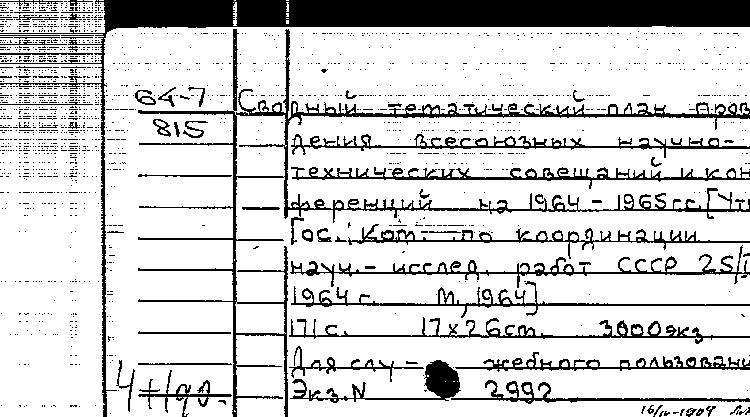 64-7
815
Сводный тематический план пров
дения всесоюзных научно-
технических совещаний и кон
ференций на 1964-1965 гг. [Утв
Гос. Ком. по координации
науч.- исслед. работ СССР 25/I
1964 г. М., 1964]
171 с. 17х26 cm. 3000 экз.
Для слу- жебного пользовани
Экз.N 2992